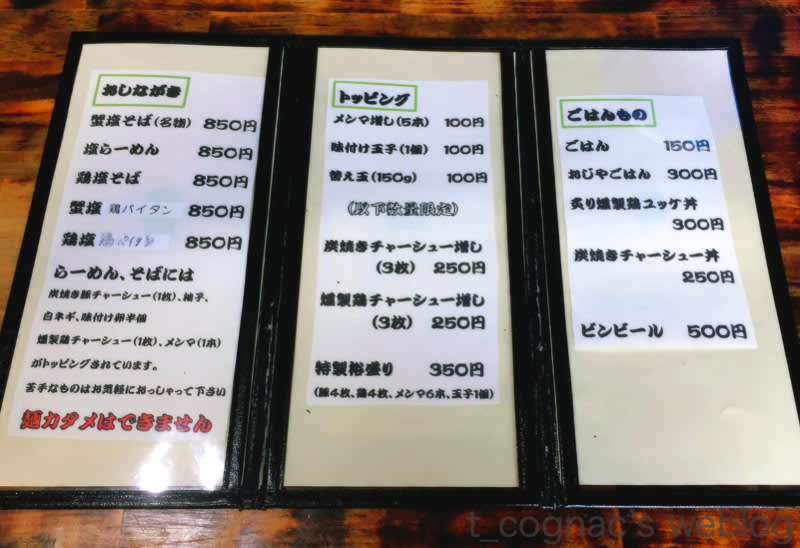 おしながき
蟹塩そば(名物) 850円
塩らーめん 850円
鶏塩そば 850円
蟹塩 鶏パイタン 850円
鶏塩 鶏パイタン 850円
らーめん、そばには
炭焼き豚チャーシュー(1枚)、柚子、
白ネギ、味付け卵半個
燻製鶏チャーシュー(1枚)、メンマ(1本)
がトッピングされています。
苦手なものはお気軽におっしゃって下さい
麺カタメはできません
トッピング
メンマ増し(5本) 100円
味付け玉子(1個) 100円
替え玉(150g) 100円
(以下数量限定)
炭焼きチャーシュー増し
(3枚) 250円
燻製鶏チャーシュー増し
(3枚) 250円
特製裕盛り 350円
(豚4枚、鶏4枚、メンマ6本、玉子1個)
ごはんもの
ごはん 150円
おじやごはん 300円
炙り燻製鶏ユッケ丼
300円
炭焼きチャーシュー丼
250円
ビンビール 500円
t_cognac's weblog